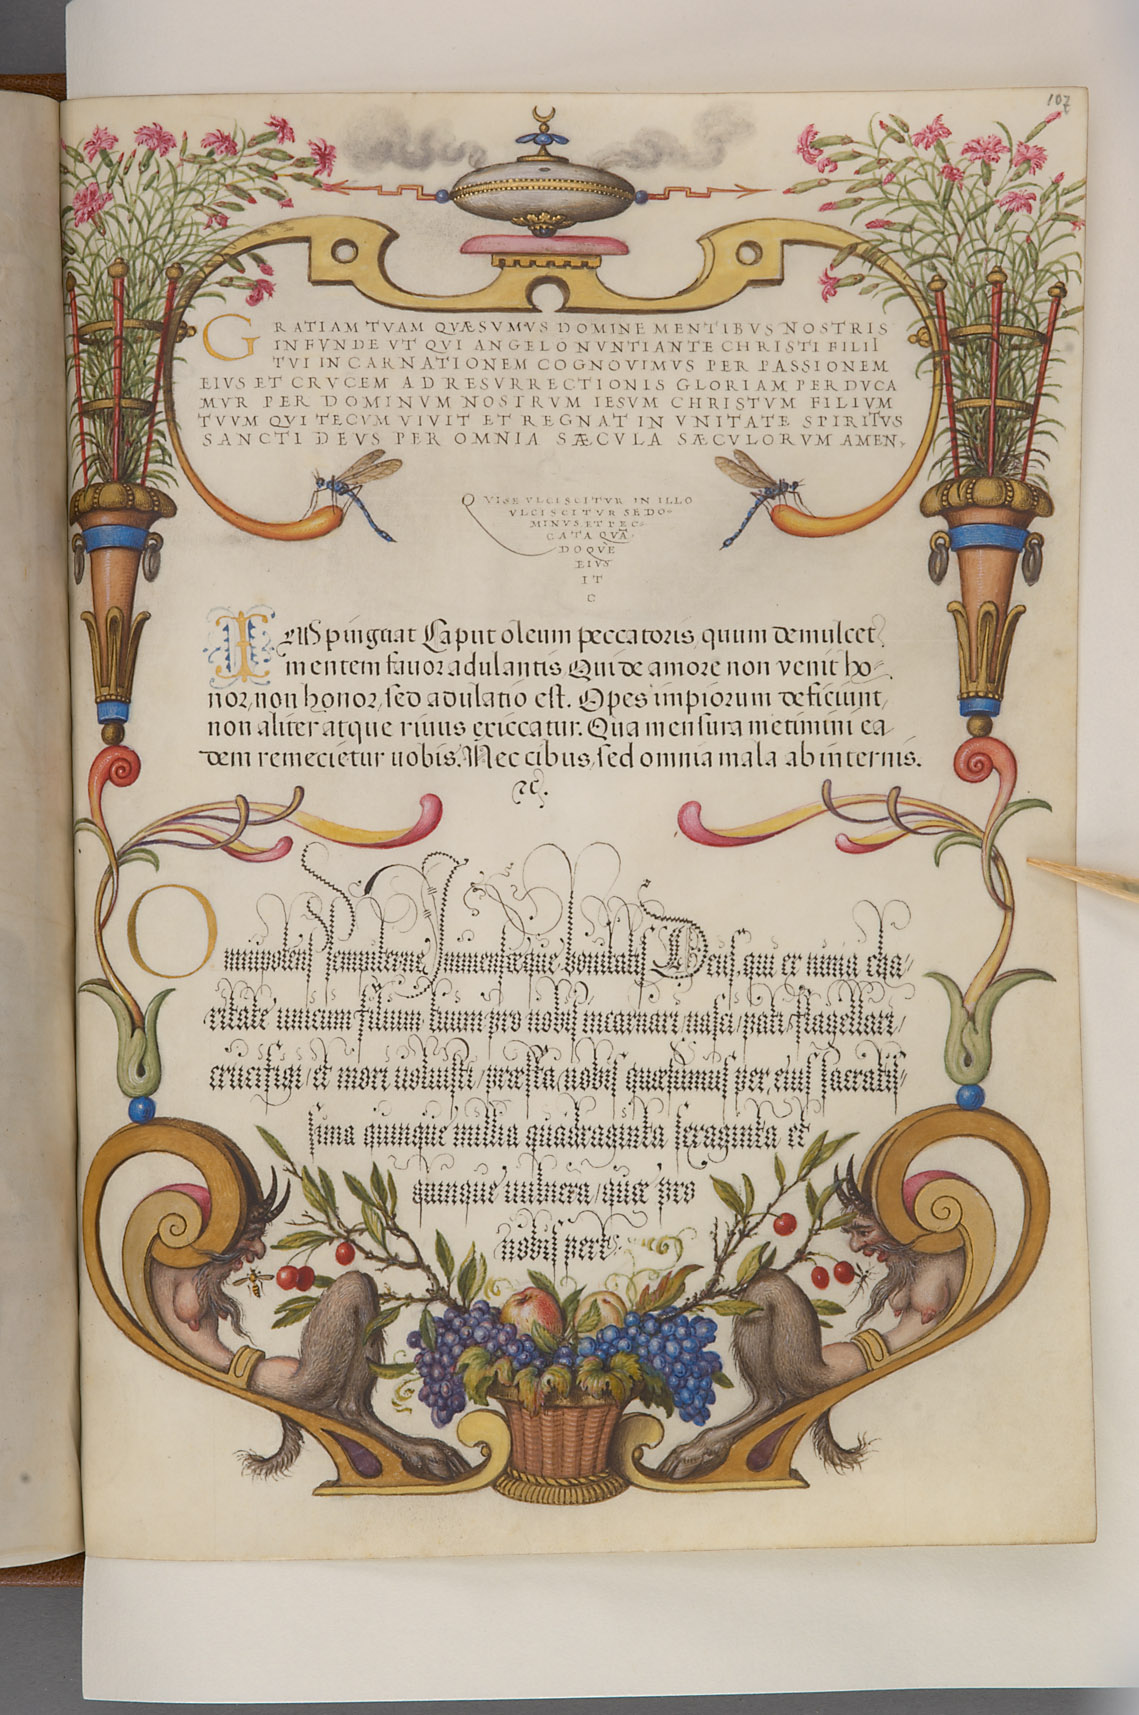 107
GRATIAM TVAM QVÆSVMVS DOMINE MENTIBVS NOSTRIS
INFVNDE VT QVI ANGELO NVNTIANTE CHRISTI FILII
TVI INCARNATIONEM COGNOVIMVS PER PASSIONEM
EIVS ET CRVCEM AD RESVRRECTIONIS GLORIAM PERDVCA
MVR PER DOMINVM NOSTRVM IESVM CHRISTVM FILIVM
TVVM QVI TECVM VIVIT ET REGNAT IN VNITATE SPIRITVS
SANCTI DEVS PER OMNIA SÆCVLA SÆCVLORVM AMEN,
QVI SE VLCISCITVR IN ILLO
VLCISCITVR SE DO-
MINVS ET PEC-
CATA QVÃ
DOQVE
EIVS
IT
C
pinguat Caput oleum peccatoris, quum demulcet
mentem fauor adulantis Qui de amore non venit ho-
nor, non honor, sed adulatio est. Opes impiorum deficiunt,
non aliter atque riuus exiccatur. Qua mensura metimini ea
dem remecietur uobis. Nec cibus, sed omnia mala ab internis.
⁊c.
Omnipotens sempiterne Immensæque bonitatis Deus, qui ex nimia cha-
ritate unicum filium tuum pro nobis incarnari, nasci, pati, flagellari,
crucifigi, et mori uoluisti, præsta, nobis quæsumus per, eius sacratis-
sima quinque millia quadraginta sexaginta et
quinque uulnera, quæ pro
nobis pert.